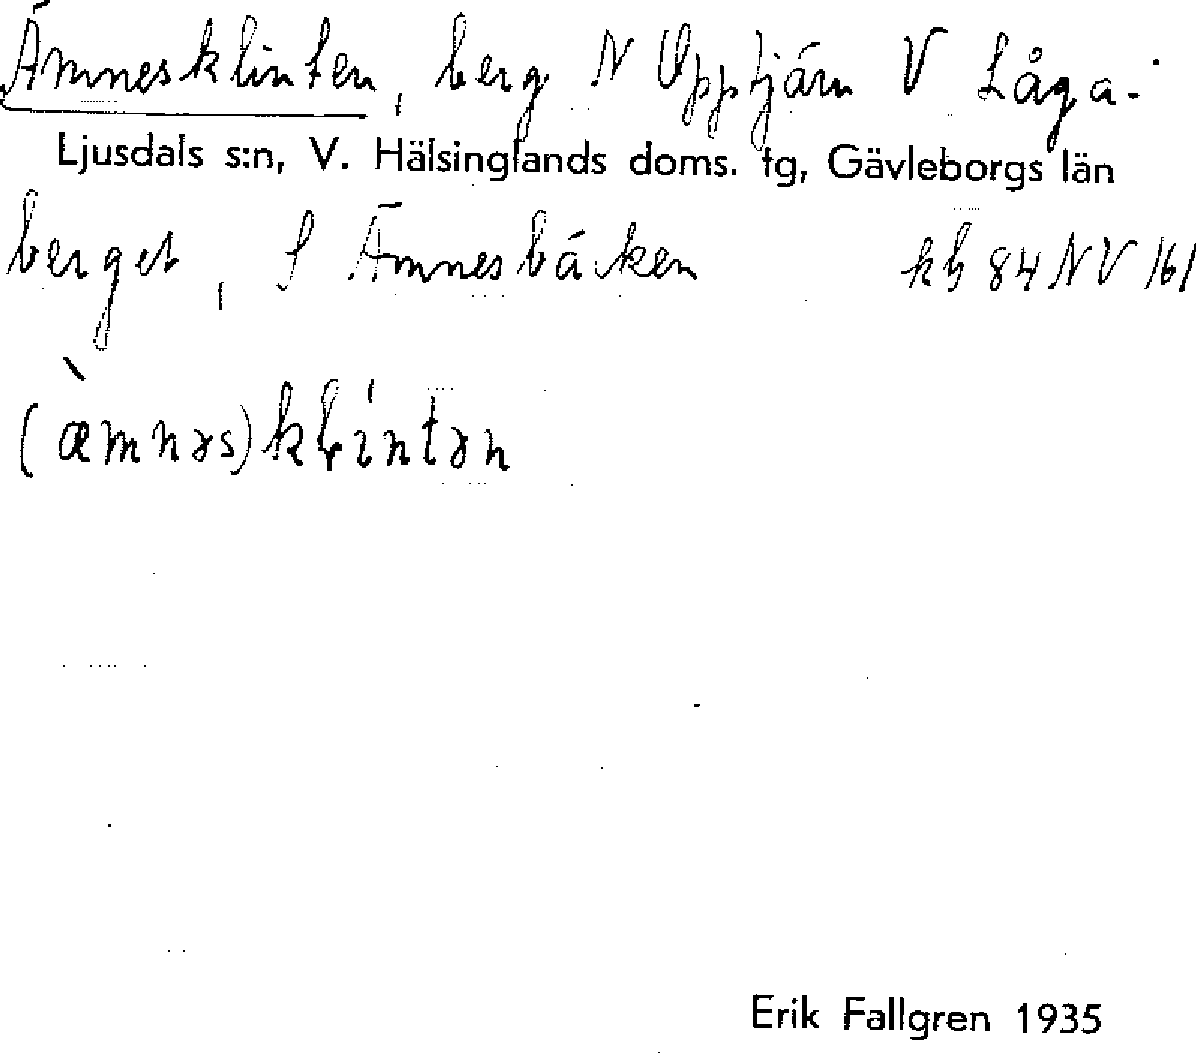 Ämnesklinten, berg N Upptjärn V Låga-
Ljusdals s:n, V. Hälsinglands doms. tg, Gävleborgs län
berget, S Ämnesbäcken kb 84 NV 161
(æ̀mnəs)kḷintən
Erik Fallgren 1935